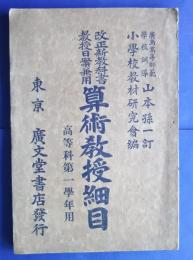 廣島高等師範
學校訓導 山本孫一訂
小學校教材研究會編
改正新教科書
教授日案兼用
算術教授細目
高等科第一學年用
東京 廣文堂書店發行